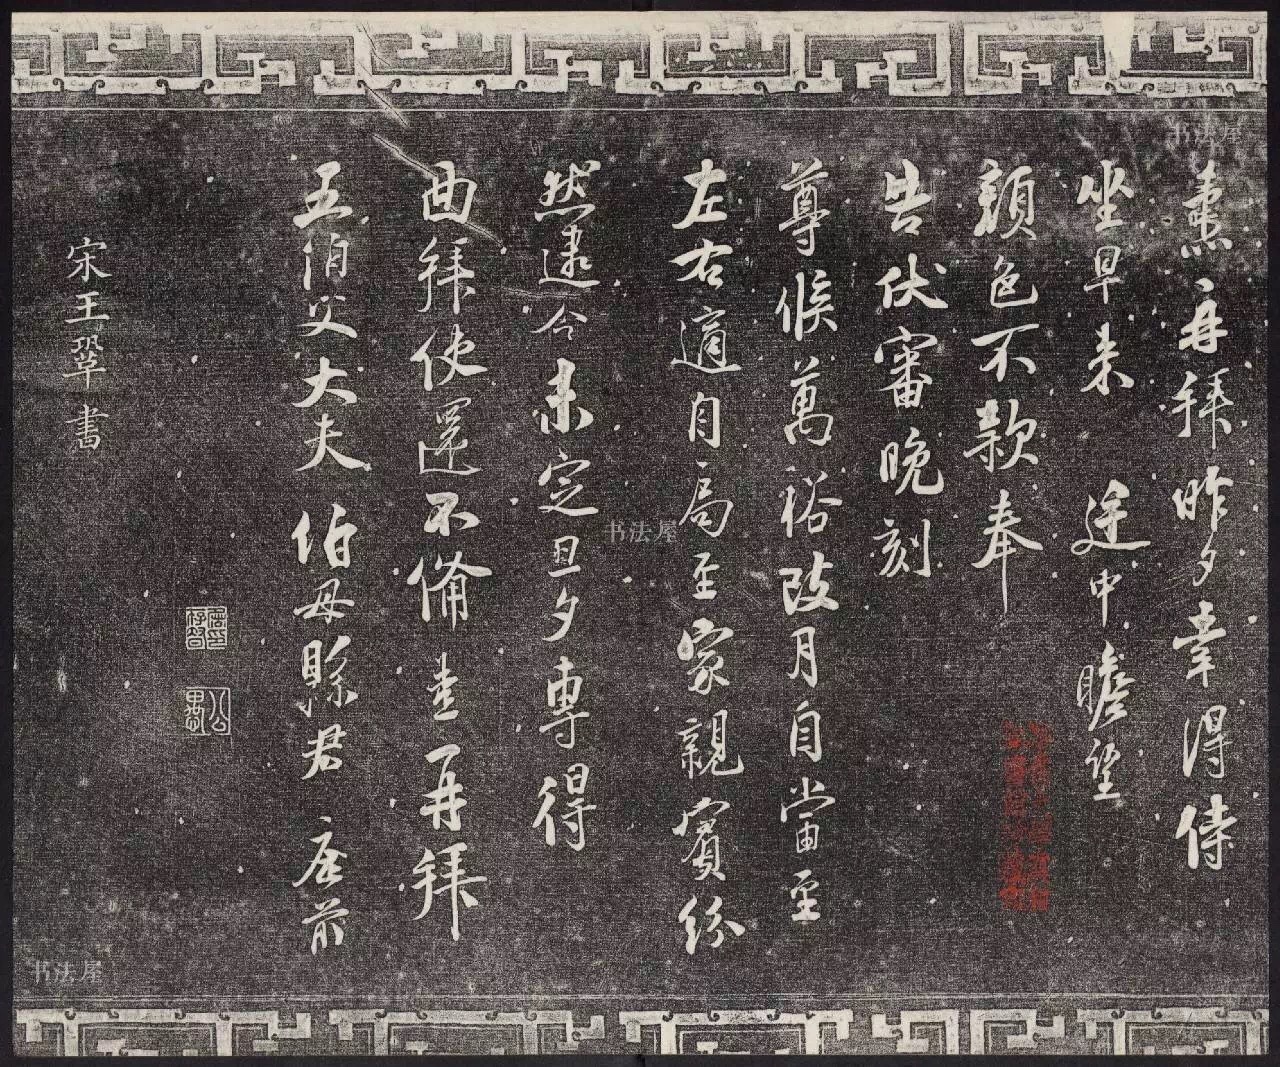 书法屋
再拜昨夕幸得侍
坐早来 廷中瞻望
顔色不款奉
告伏審晚刻
尊候萬裕改月自當至
左右適自局至家親賓紛
书法屋
然今未定旦夕專得
曲拜使還不備 再拜
五伯父大夫 伯母縣君 座前
宋王鞏書
书法屋